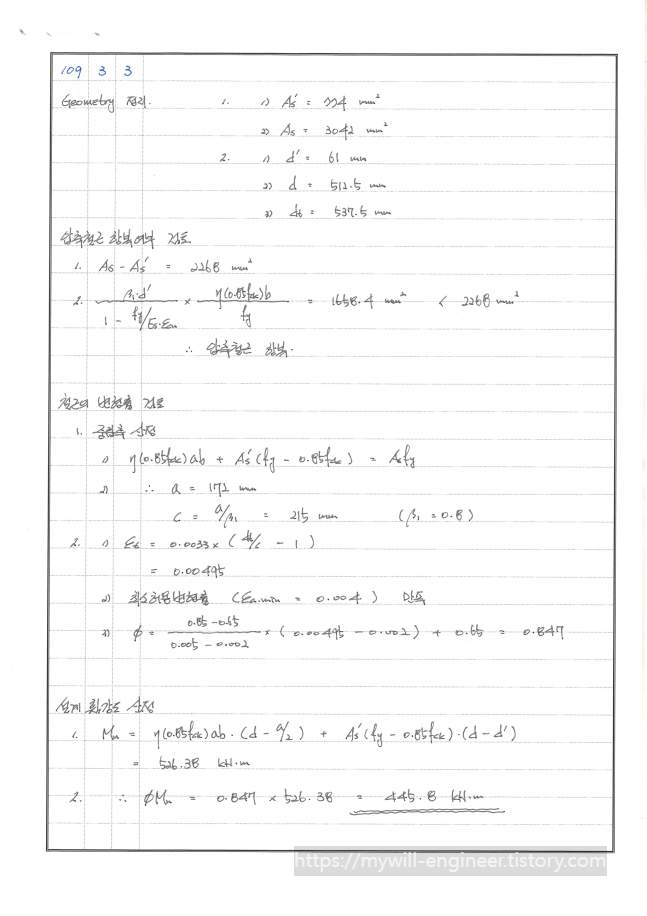 109 3 3
Geometry 정리. 1. 1) As' = 774 mm²
2) As = 3042 mm²
2. 1) d' = 61 mm
2) d = 512.5 mm
3) dt = 537.5 mm
압축철근 항복여부 검토
1. As - As' = 2268 mm²
2. β1·d' / (1 - fy/Es·εcu) × η(0.85fck)b / fy = 1658.4 mm² < 2268 mm²
∴ 압축철근 항복.
철근의 변형률 검토
1. 중립축 산정
1) η(0.85fck)ab + As'(fy - 0.85fck) = Asfy
2) ∴ a = 172 mm
c = a/β1 = 215 mm (β1 = 0.8)
2. 1) εt = 0.0033 × (dt/c - 1)
= 0.00495
2) 최소허용변형률 (εa.min = 0.004) 만족
3) φ = (0.85 - 0.65) / (0.005 - 0.002) × (0.00495 - 0.002) + 0.65 = 0.847
설계 휨강도 산정
1. Mn = η(0.85fck)ab·(d - a/2) + As'(fy - 0.85fck)·(d - d')
= 526.38 kN·m
2. ∴ φMn = 0.847 × 526.38 = 445.8 kN·m
https://mywill-engineer.tistory.com